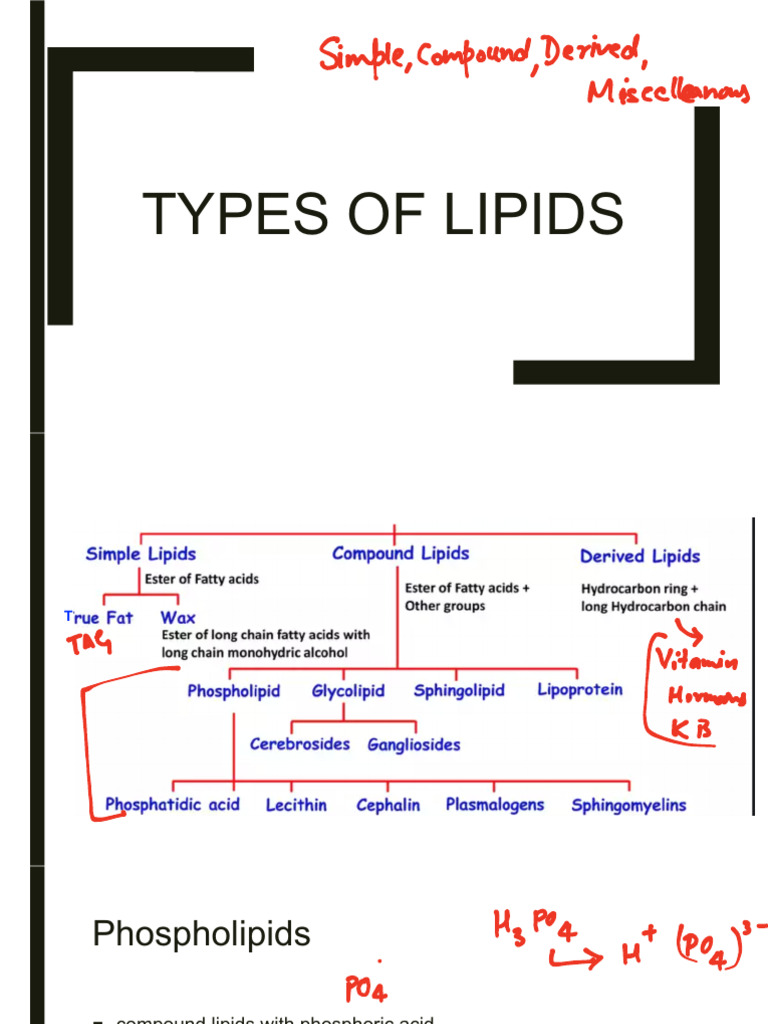 Simple, Compound, Derived,
Miscelleanous
TYPES OF LIPIDS
Simple Lipids Compound Lipids Derived Lipids
Ester of Fatty acids
Ester of Fatty acids +
Other groups
Hydrocarbon ring +
long Hydrocarbon chain
True Fat Wax
TAG
Ester of long chain fatty acids with
long chain monohydric alcohol
Vitamin
Hormons
KB
Phospholipid Glycolipid Sphingolipid Lipoprotein
Cerebrosides Gangliosides
Phosphatidic acid Lecithin Cephalin Plasmalogens Sphingomyelins
Phospholipids
H3PO4
→ H+ (PO4)3-
PO4
compound lipids with phosphoric acid